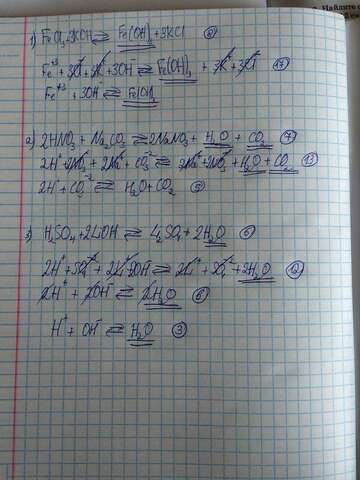 1) FeCl₃+3KOH ⇄ Fe(OH)₃ + 3KCl (8)
Fe⁺³ + 3Cl⁻ + 3K⁺ + 3OH⁻ ⇄ Fe(OH)₃ + 3K⁺ + 3Cl⁻ (17)
Fe⁺³ + 3OH⁻ ⇄ Fe(OH)₃
2) 2HNO₃ + Na₂CO₃ ⇄ 2NaNO₃ + H₂O + CO₂ (7)
2H⁺ + 2NO₃⁻ + 2Na⁺ + CO₃⁻² ⇄ 2Na⁺ + 2NO₃⁻ + H₂O + CO₂ (13)
2H⁺ + CO₃⁻² ⇄ H₂O + CO₂ (5)
3) H₂SO₄ + 2LiOH ⇄ Li₂SO₄ + 2H₂O (6)
2H⁺ + SO₄⁻² + 2Li⁺ 2OH⁻ ⇄ 2Li⁺ + SO₄⁻² + 2H₂O (12)
2H⁺ + 2OH⁻ ⇄ 2H₂O (6)
H⁺ + OH⁻ ⇄ H₂O (3)